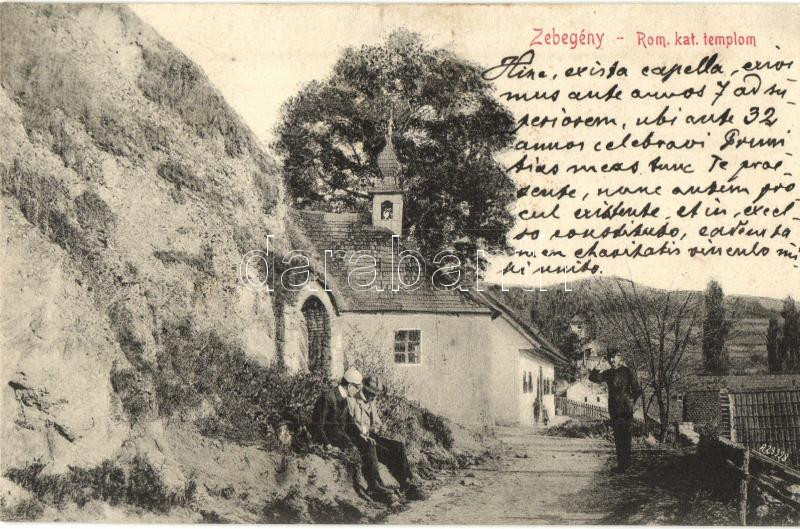 Zebegény - Rom. kat. templom
Hinc, exista capella,
mus ante annos 7 ad su-
periorem, ubi ante 32
annos celebravi Primi-
tias meas tunc Te prae-
sente, nunc autem pro-
cul existente, et in, excel-
so constituto,
men charitatis vinculo mi-
hi unito.
darabanth.com